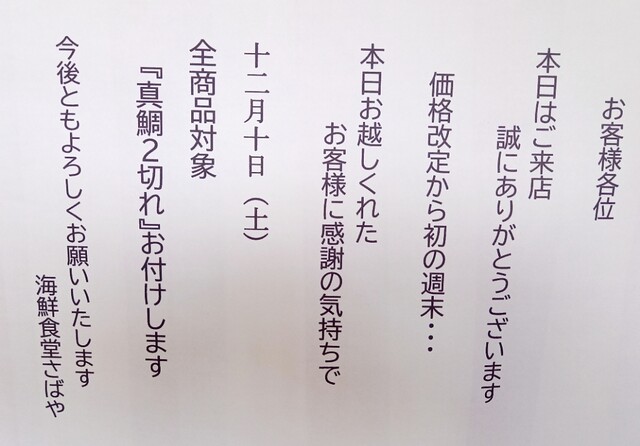 お客様各位
本日はご来店
誠にありがとうございます
価格改定から初の週末・・・
本日お越しくれた
お客様に感謝の気持ちで
十二月十日（土）
全商品対象
『真鯛２切れ』お付けします
今後ともよろしくお願いいたします
海鮮食堂さばや